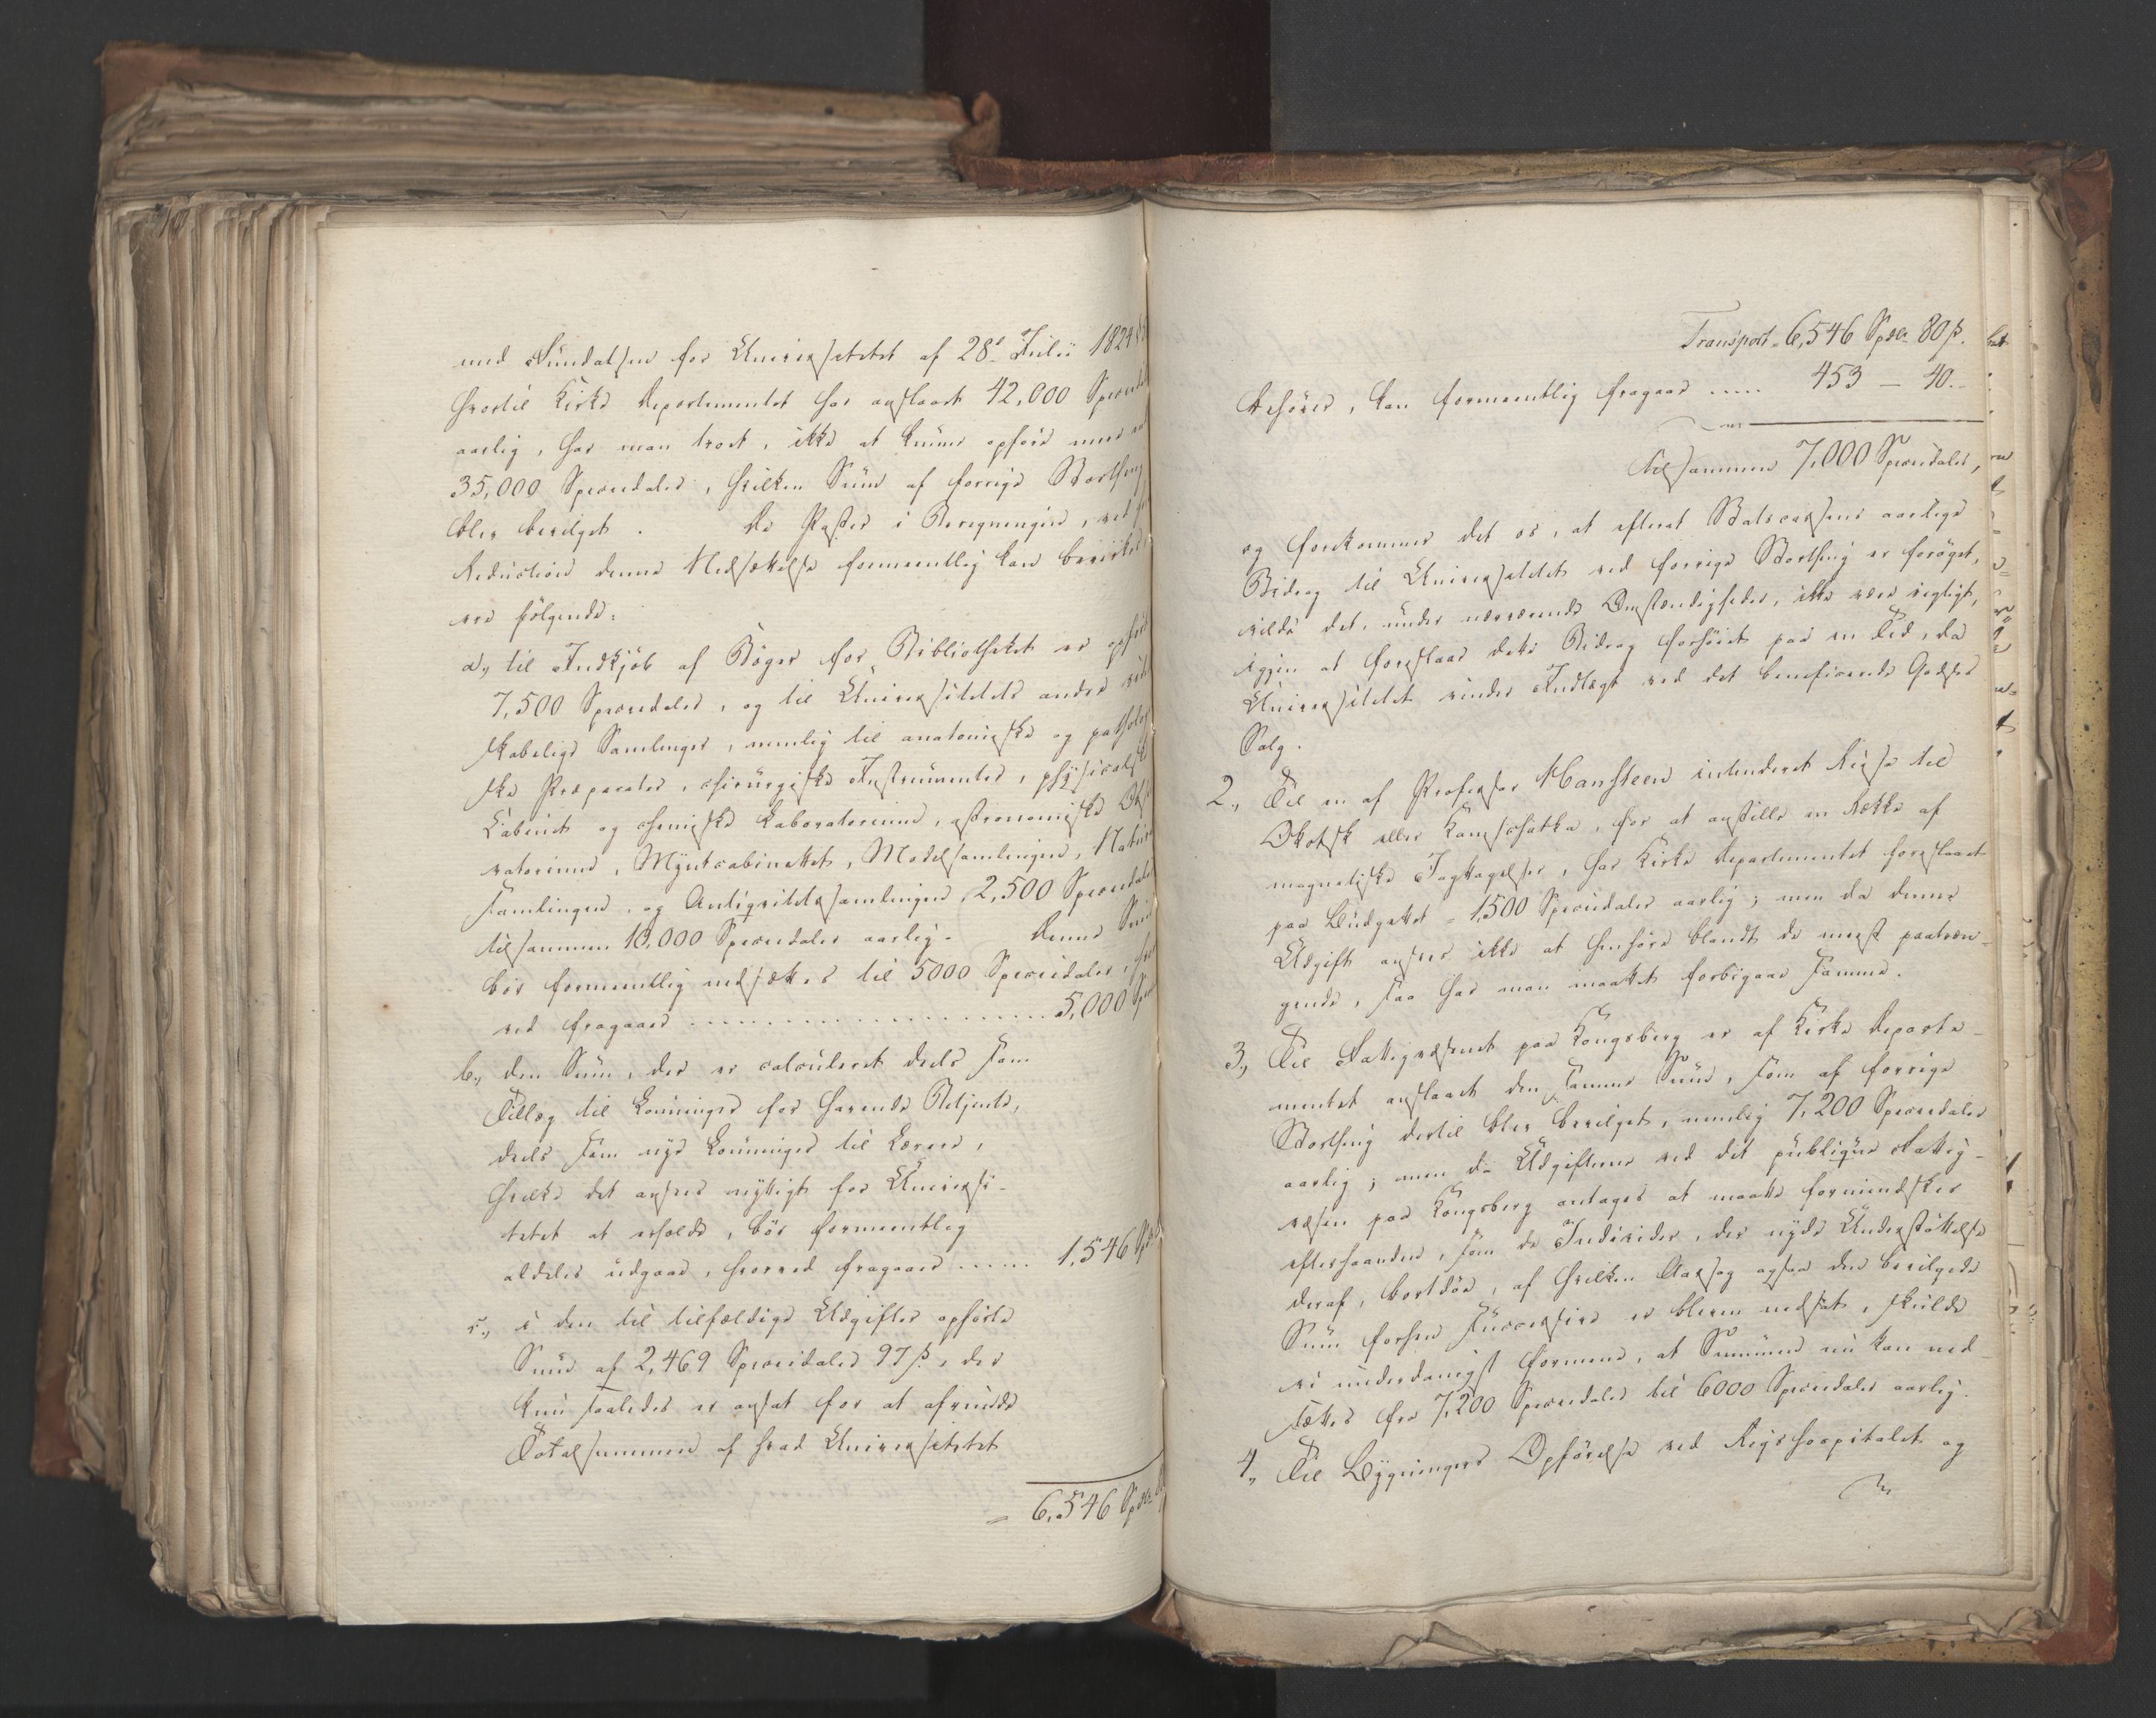 med Fundatsen for Universitetet af 28de Julii 1824
hvortil Kirke Departementet har anslaaet 42,000 Speciedl
aarlig, har man troet, ikke at kunne opføre meer end
35,000 Speciedaler, hvilken Sum af forrige Storthing
blev bevilget. De Poster i Beregningen, ved
Reduction denne Nedsættelse formeentlig kan bevirkes,
ere følgende:
a., til Indkjøb af Bøger for Bibliotheket er opført
7,500 Speciedaler, og til Universitetets andre viden
skabelige Samlinger, nemlig til anatomiske og patholog
ske Præparater, chirurgiske Instrumenter, physicalsk
Cabinet og chemiske Laboratorium, astronomiske Obser
vatorium, Myntcabinettet, Modelsamlingen, Natur
samlingen, og Antiqvitetssamlingen 2,500 Speciedaler
tilsammen 10,000 Speciedaler aarlig. Denne Sum
bør formeentlig nedsættes til 5000 Speciedaler, hvor
ved fragaaer ..... 5,000 Spec
b., den Sum, der er calculeret deels som
Tillæg til Lønninger for havende Betjente,
deels som nye Lønninger til Lærere,
hvilke det ansees nyttigt for Universi-
tetet at erholde, bør formeentlig
aldeles udgaae, hvorved fragaaer ...... 1,546 Spd
c., i den til tilfældige Udgifter opførte
Sum af 2,469 Speciedaler 97 ß, der
kun saaledes er ansat for at afrunde
Totalsummen af hvad Universitetet
= 6,546 Spdlr
Transport 6,546 Spdlr 80 ß.
behøver, kan formeentlig fragaae ..... 453 — 40.-
Tilsammen 7,000 Speciedaler,
og forekommer det os, at efterat Statscassens aarlige
Bidrag til Universitetet ved forrige Storthing er forøget,
vilde det, under nærværende Omstændigheder, ikke være rigtigt,
igjen at foreslaae dets Bidrag forhøiet paa en Tid, da
Universitetet vinder Indtægt ved det beneficerede Godses
Salg.
2., Til en af Professor Hansteen intenderet Reise til
Okotsk eller Kamschatka, for at anstille en Række af
magnetiske Iagttagelser, har Kirke Departementet foreslaaet
paa Budgettet = 1500 Speciedaler aarlig; men da denne
Udgift ansees ikke at henhøre blandt de meest paatræn-
gende, saa har man maattet forbigaae samme.
3., Til Fattigvæsenet paa Kongsberg er af Kirke Departe-
mentet anslaaet den samme Sum, som af forrige
Storthing dertil blev bevilget, nemlig 7,200 Speciedaler
aarlig; men da Udgifterne ved det publique Fattig-
væsen paa Kongsberg antages at maatte formindskes
efterhaanden, som de Individer, der nyde Understøttelse
deraf, bortdøe, af hvilken Aarsag ogsaa den bevilgede
Sum forhen successive er bleven nedsat, skulde
vi underdanigst formene, at Summen nu kan ned-
sættes fra 7,200 Speciedaler til 6000 Speciedaler aarlig.
4., Til Bygningers Opførelse ved Rigshospitalet og